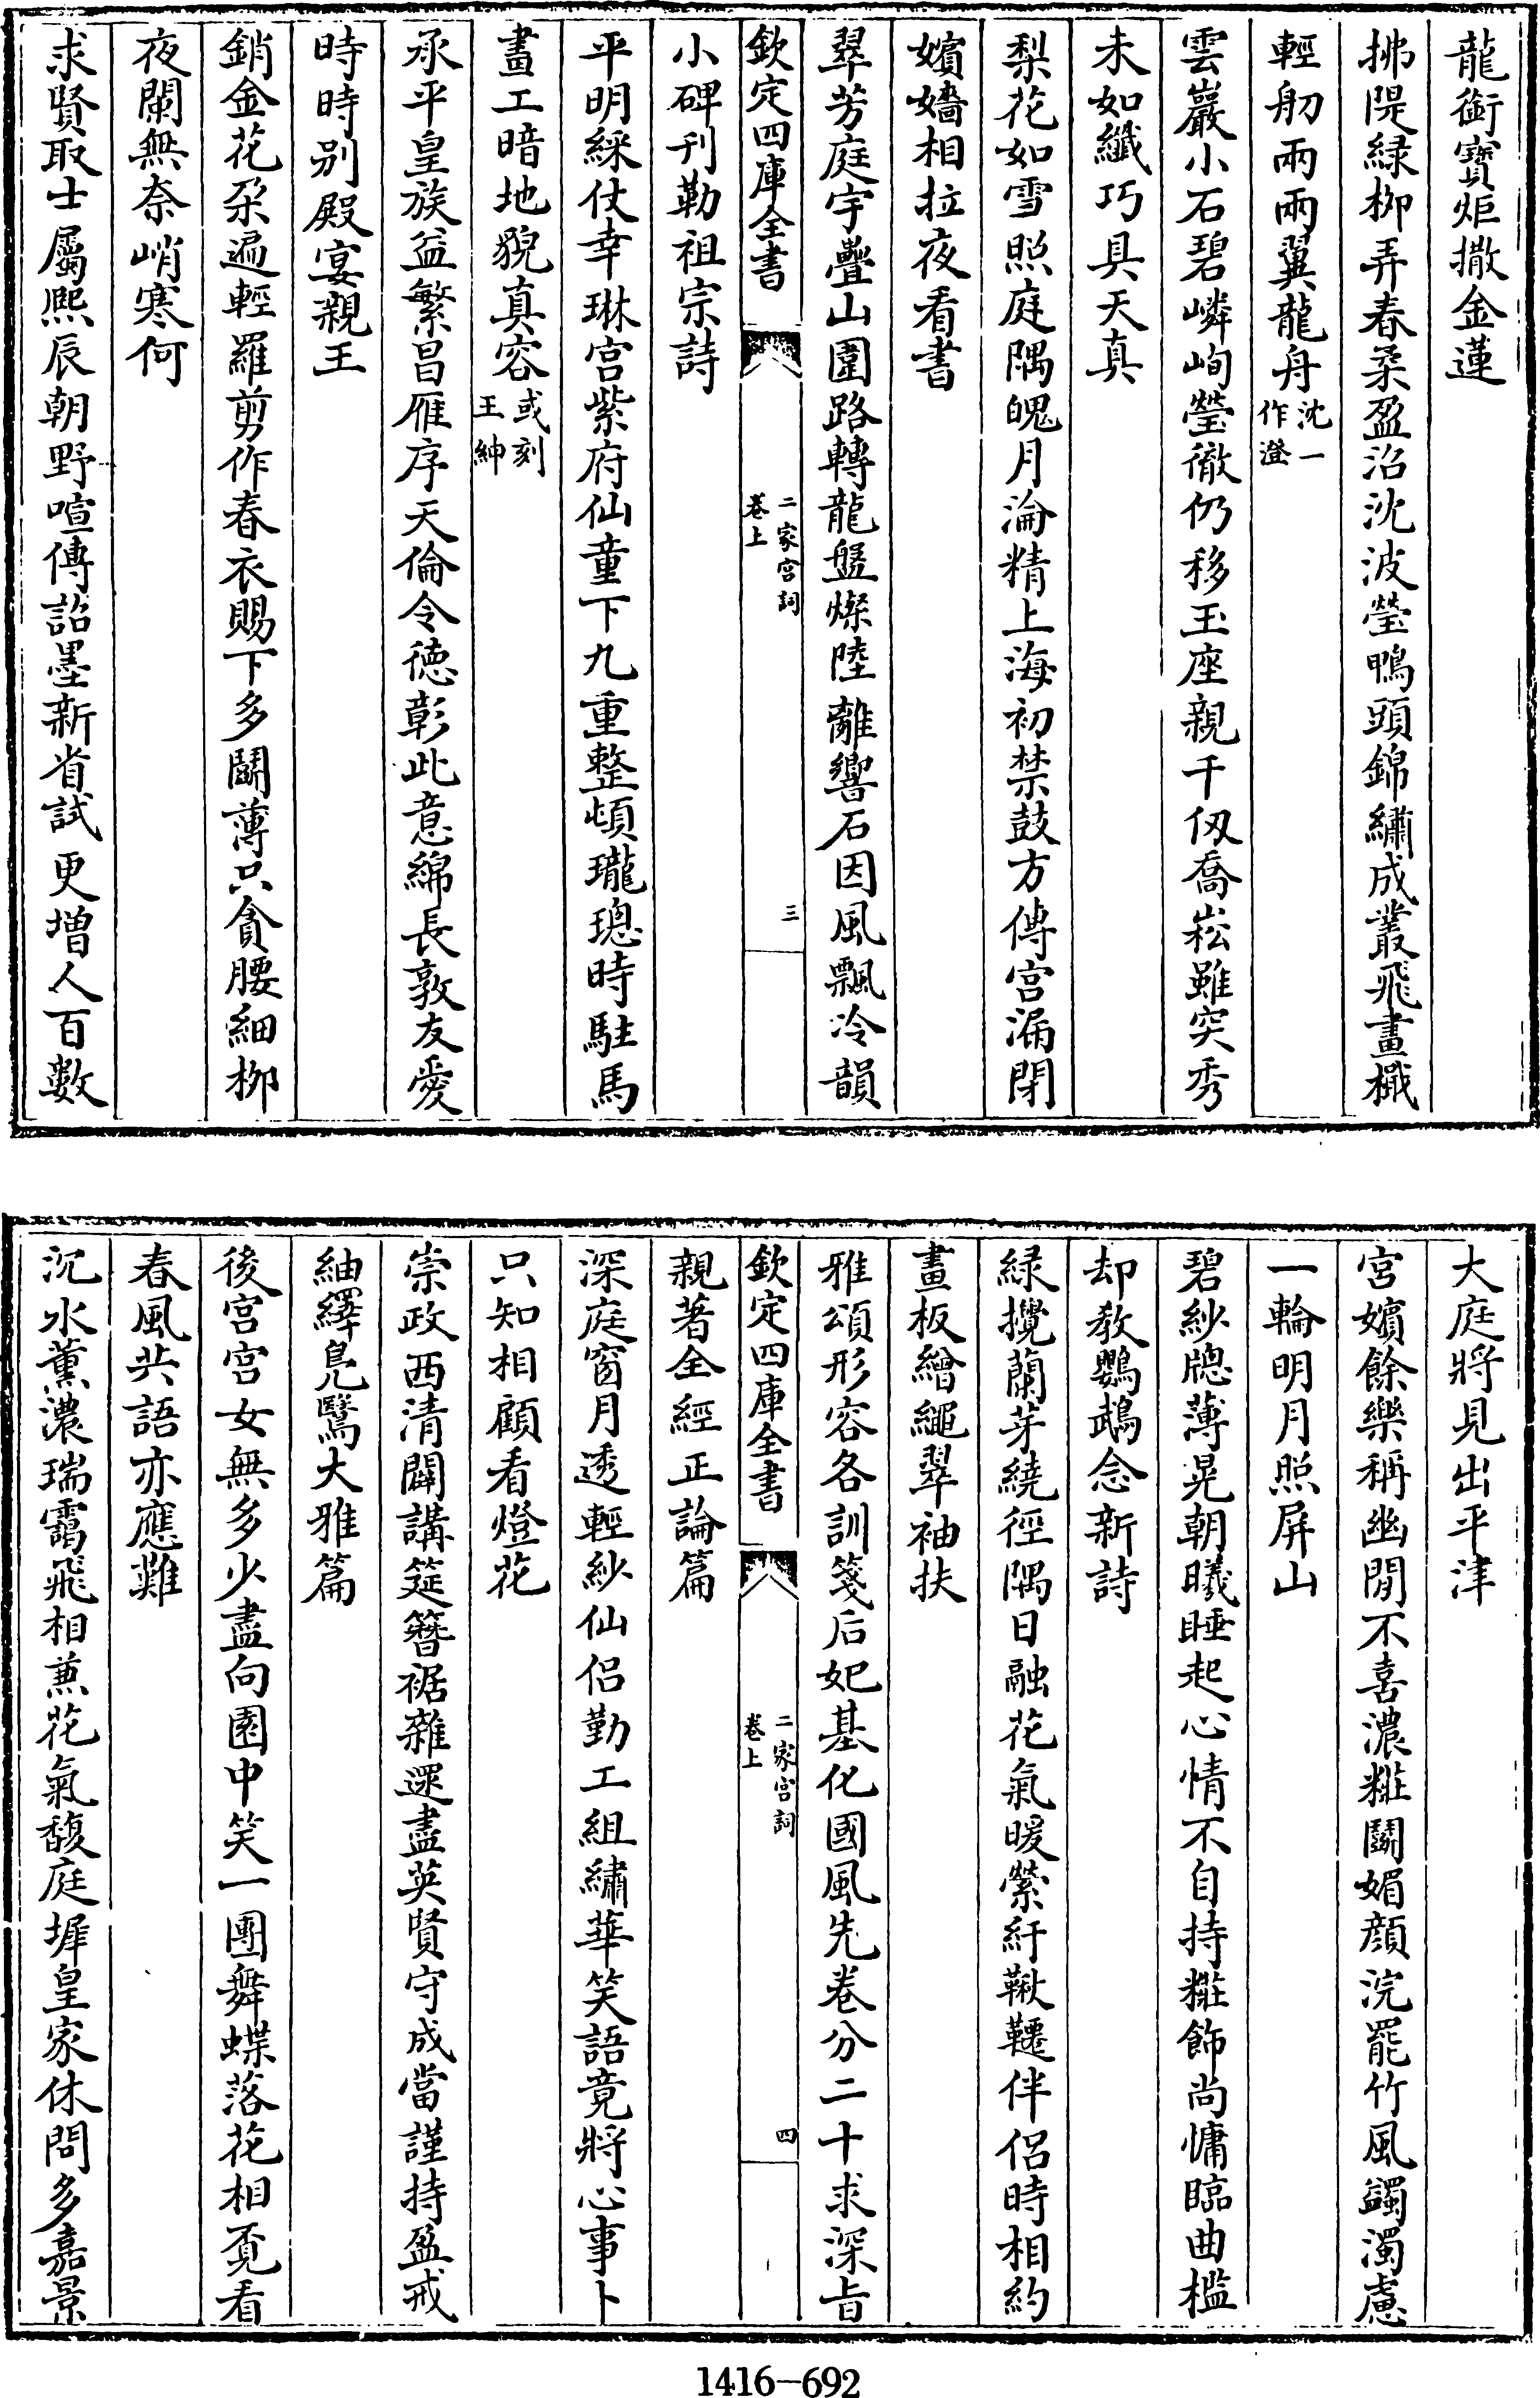 龍銜寶炬撒金蓮
拂隄緑栁弄春柔盈沼沈波瑩鴨頭錦繡成叢飛畫檝
輕舠兩兩翼龍舟沈一作澄
雲巖小石碧嶙峋瑩徹仍移玉座親千仭喬崧雖突秀
未如纖巧具天真
梨花如雪照庭隅皦月淪精上海初禁鼓方傳宫漏閉
嬪嬙相拉夜看書
翠芳庭宇疊山圍路轉龍盤燦陸離響石因風飄冷韻
欽定四庫全書
二家宫詞
卷上
三
小碑刊勒祖宗詩
平明綵仗幸琳宫紫府仙童下九重整頓瓏璁時駐馬
畫工暗地貌真容或刻王紳
承平皇族益繁昌雁序天倫令徳彰此意綿長敦友愛
時時别殿宴親王
銷金花朶遍輕羅剪作春衣賜下多鬭薄只貪腰細栁
夜闌無奈峭寒何
求賢取士屬熈辰朝野喧傳詔墨新省試更增人百數
大庭將見出平津
宫嬪餘樂稱幽閒不喜濃糚鬭媚顔浣罷竹風蠲濁慮
一輪明月照屏山
碧紗牎薄晃朝曦睡起心情不自持糚飾尚慵臨曲檻
却教鸚鵡念新詩
緑攪蘭芽繞徑隅日融花氣暖縈紆鞦韆伴侣時相約
畫板繒繩翠袖扶
雅頌形容各訓箋后妃基化國風先卷分二十求深旨
欽定四庫全書
二家宫詞
卷上
四
親著全經正論篇
深庭窗月透輕紗仙侣勤工組繡華笑語竟將心事卜
只知相顧看燈花
崇政西清闢講筵簪裾雜遝盡英賢守成當謹持盈戒
紬繹鳬鷖大雅篇
後宫宫女無多少盡向園中笑一團舞蝶落花相覔看
春風共語亦應難
沉水薰濃瑞靄飛相兼花氣馥庭墀皇家休問多嘉景
1416-692